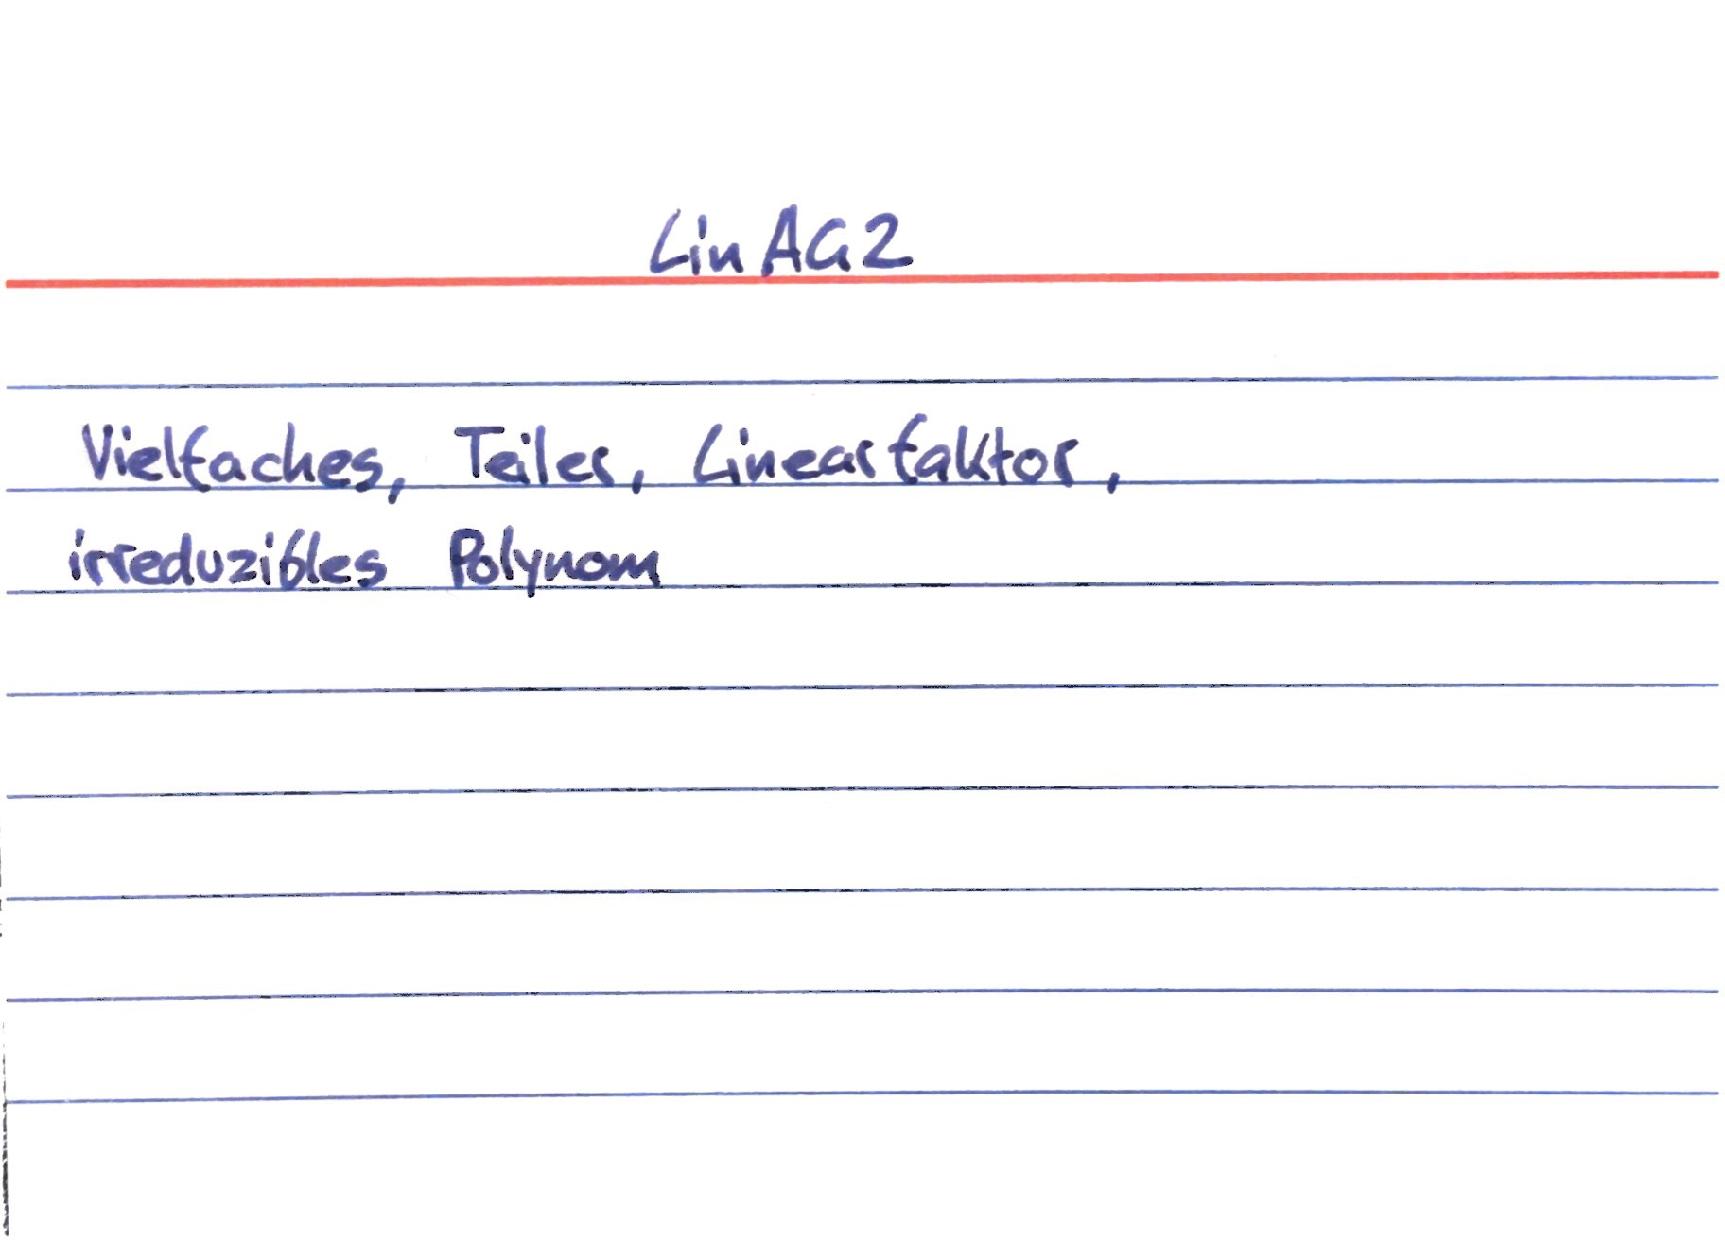 LinAG2
Vielfaches, Teiler, Linearfaktor,
irreduzibles Polynom